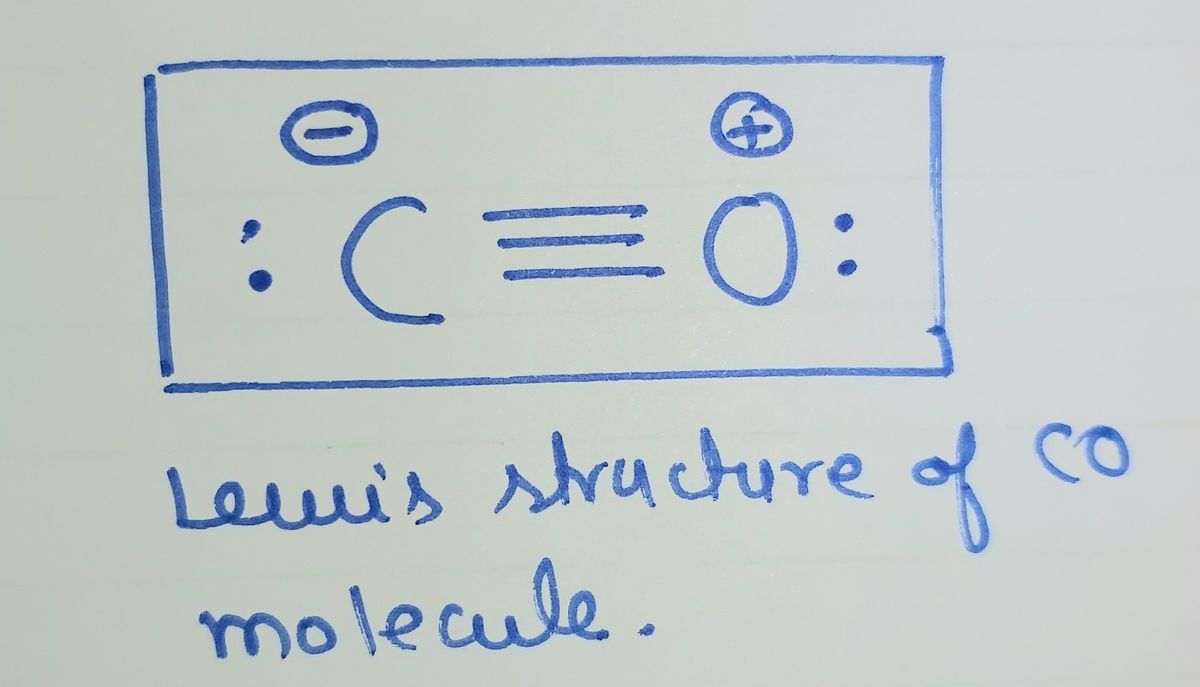 ⊖ ⊕
: C ≡ O :
Lewis structure of CO
molecule.